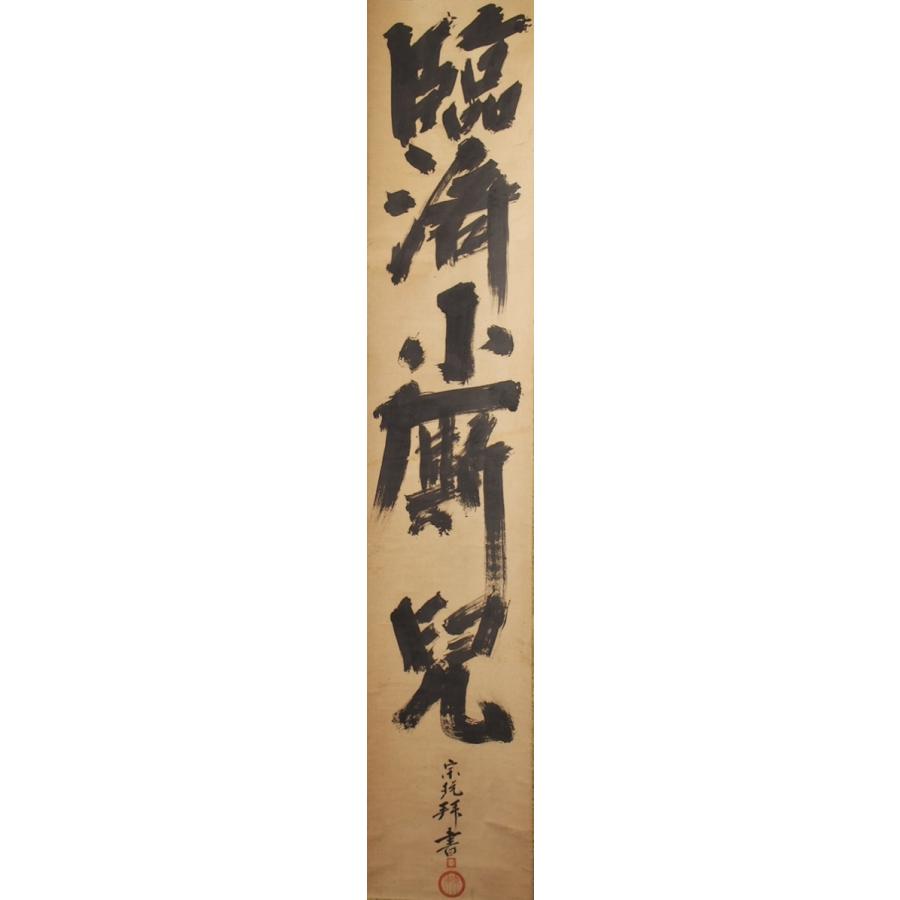 臨濟小廝兒
宗玩拜書